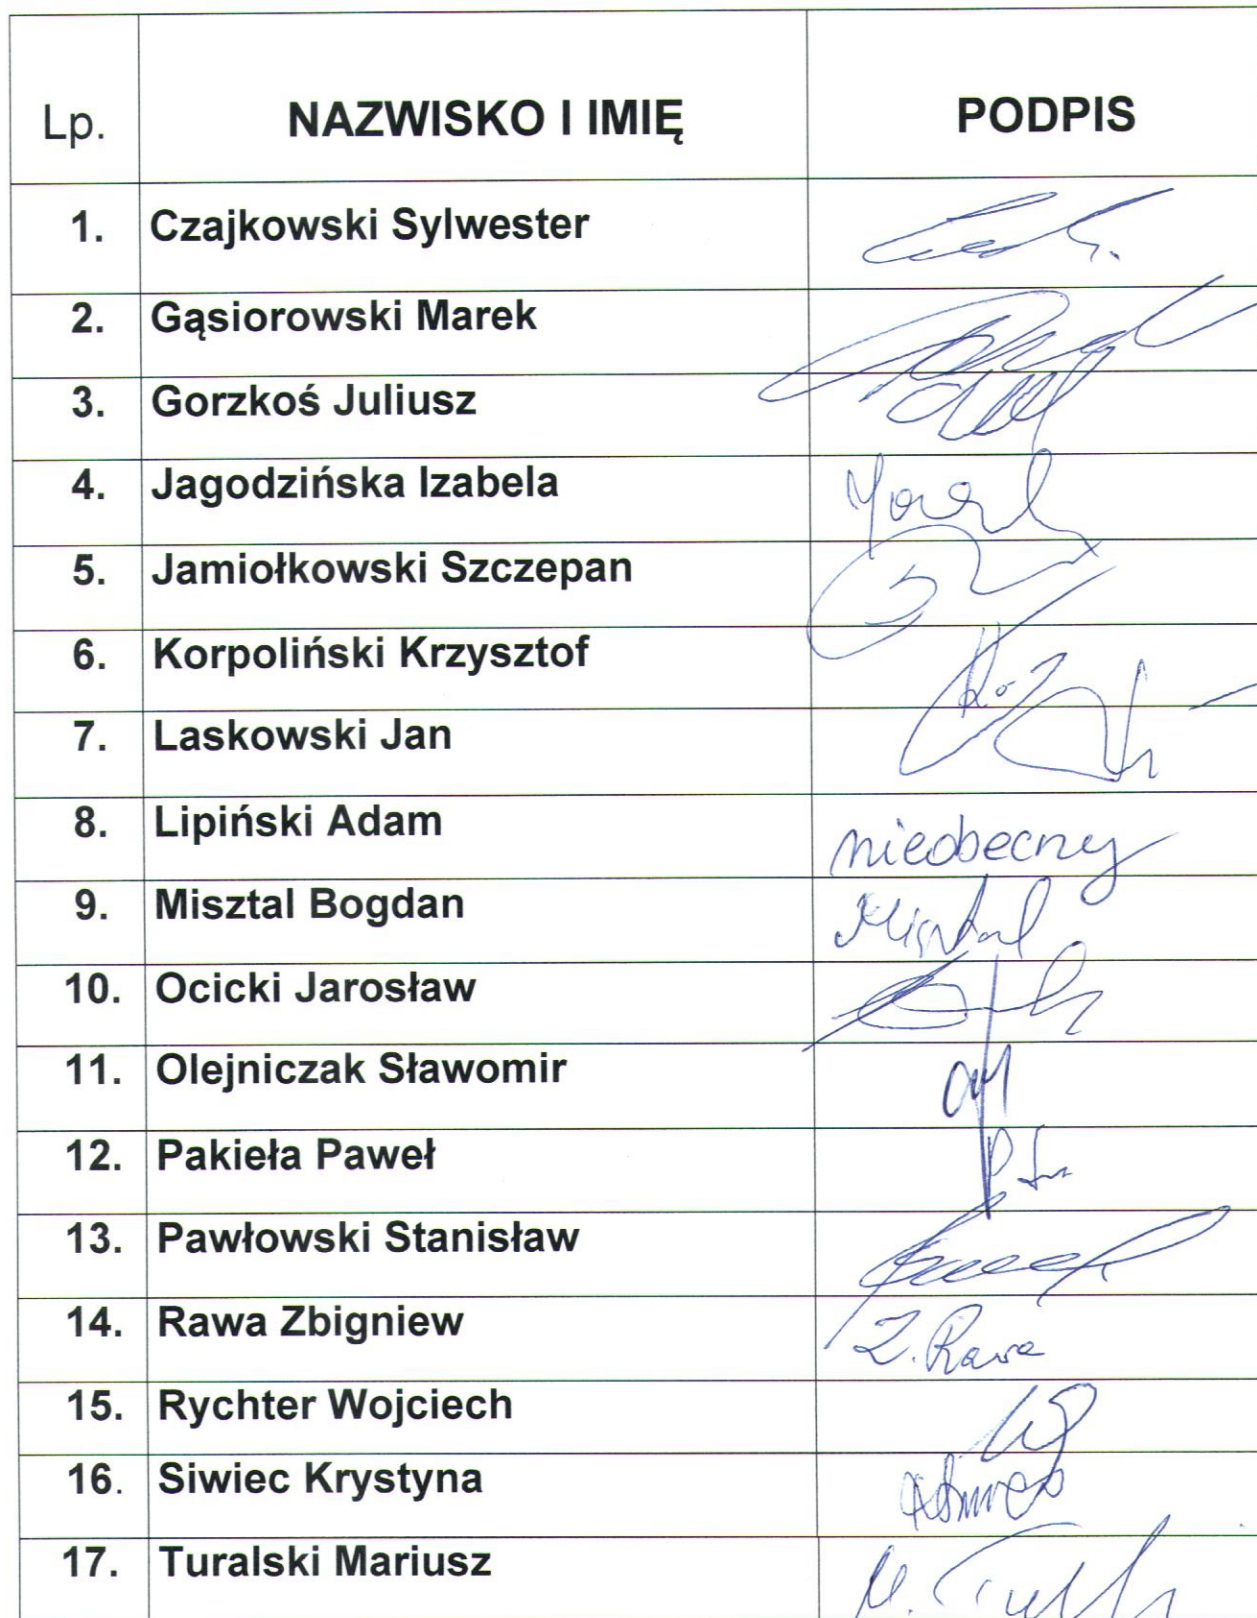 Lp. NAZWISKO I IMIĘ PODPIS
1. Czajkowski Sylwester
2. Gąsiorowski Marek
3. Gorzkoś Juliusz
4. Jagodzińska Izabela
5. Jamiołkowski Szczepan
6. Korpoliński Krzysztof
7. Laskowski Jan
8. Lipiński Adam nieobecny
9. Misztal Bogdan Misztal
10. Ocicki Jarosław
11. Olejniczak Sławomir
12. Pakieła Paweł
13. Pawłowski Stanisław
14. Rawa Zbigniew Z. Rawa
15. Rychter Wojciech
16. Siwiec Krystyna
17. Turalski Mariusz